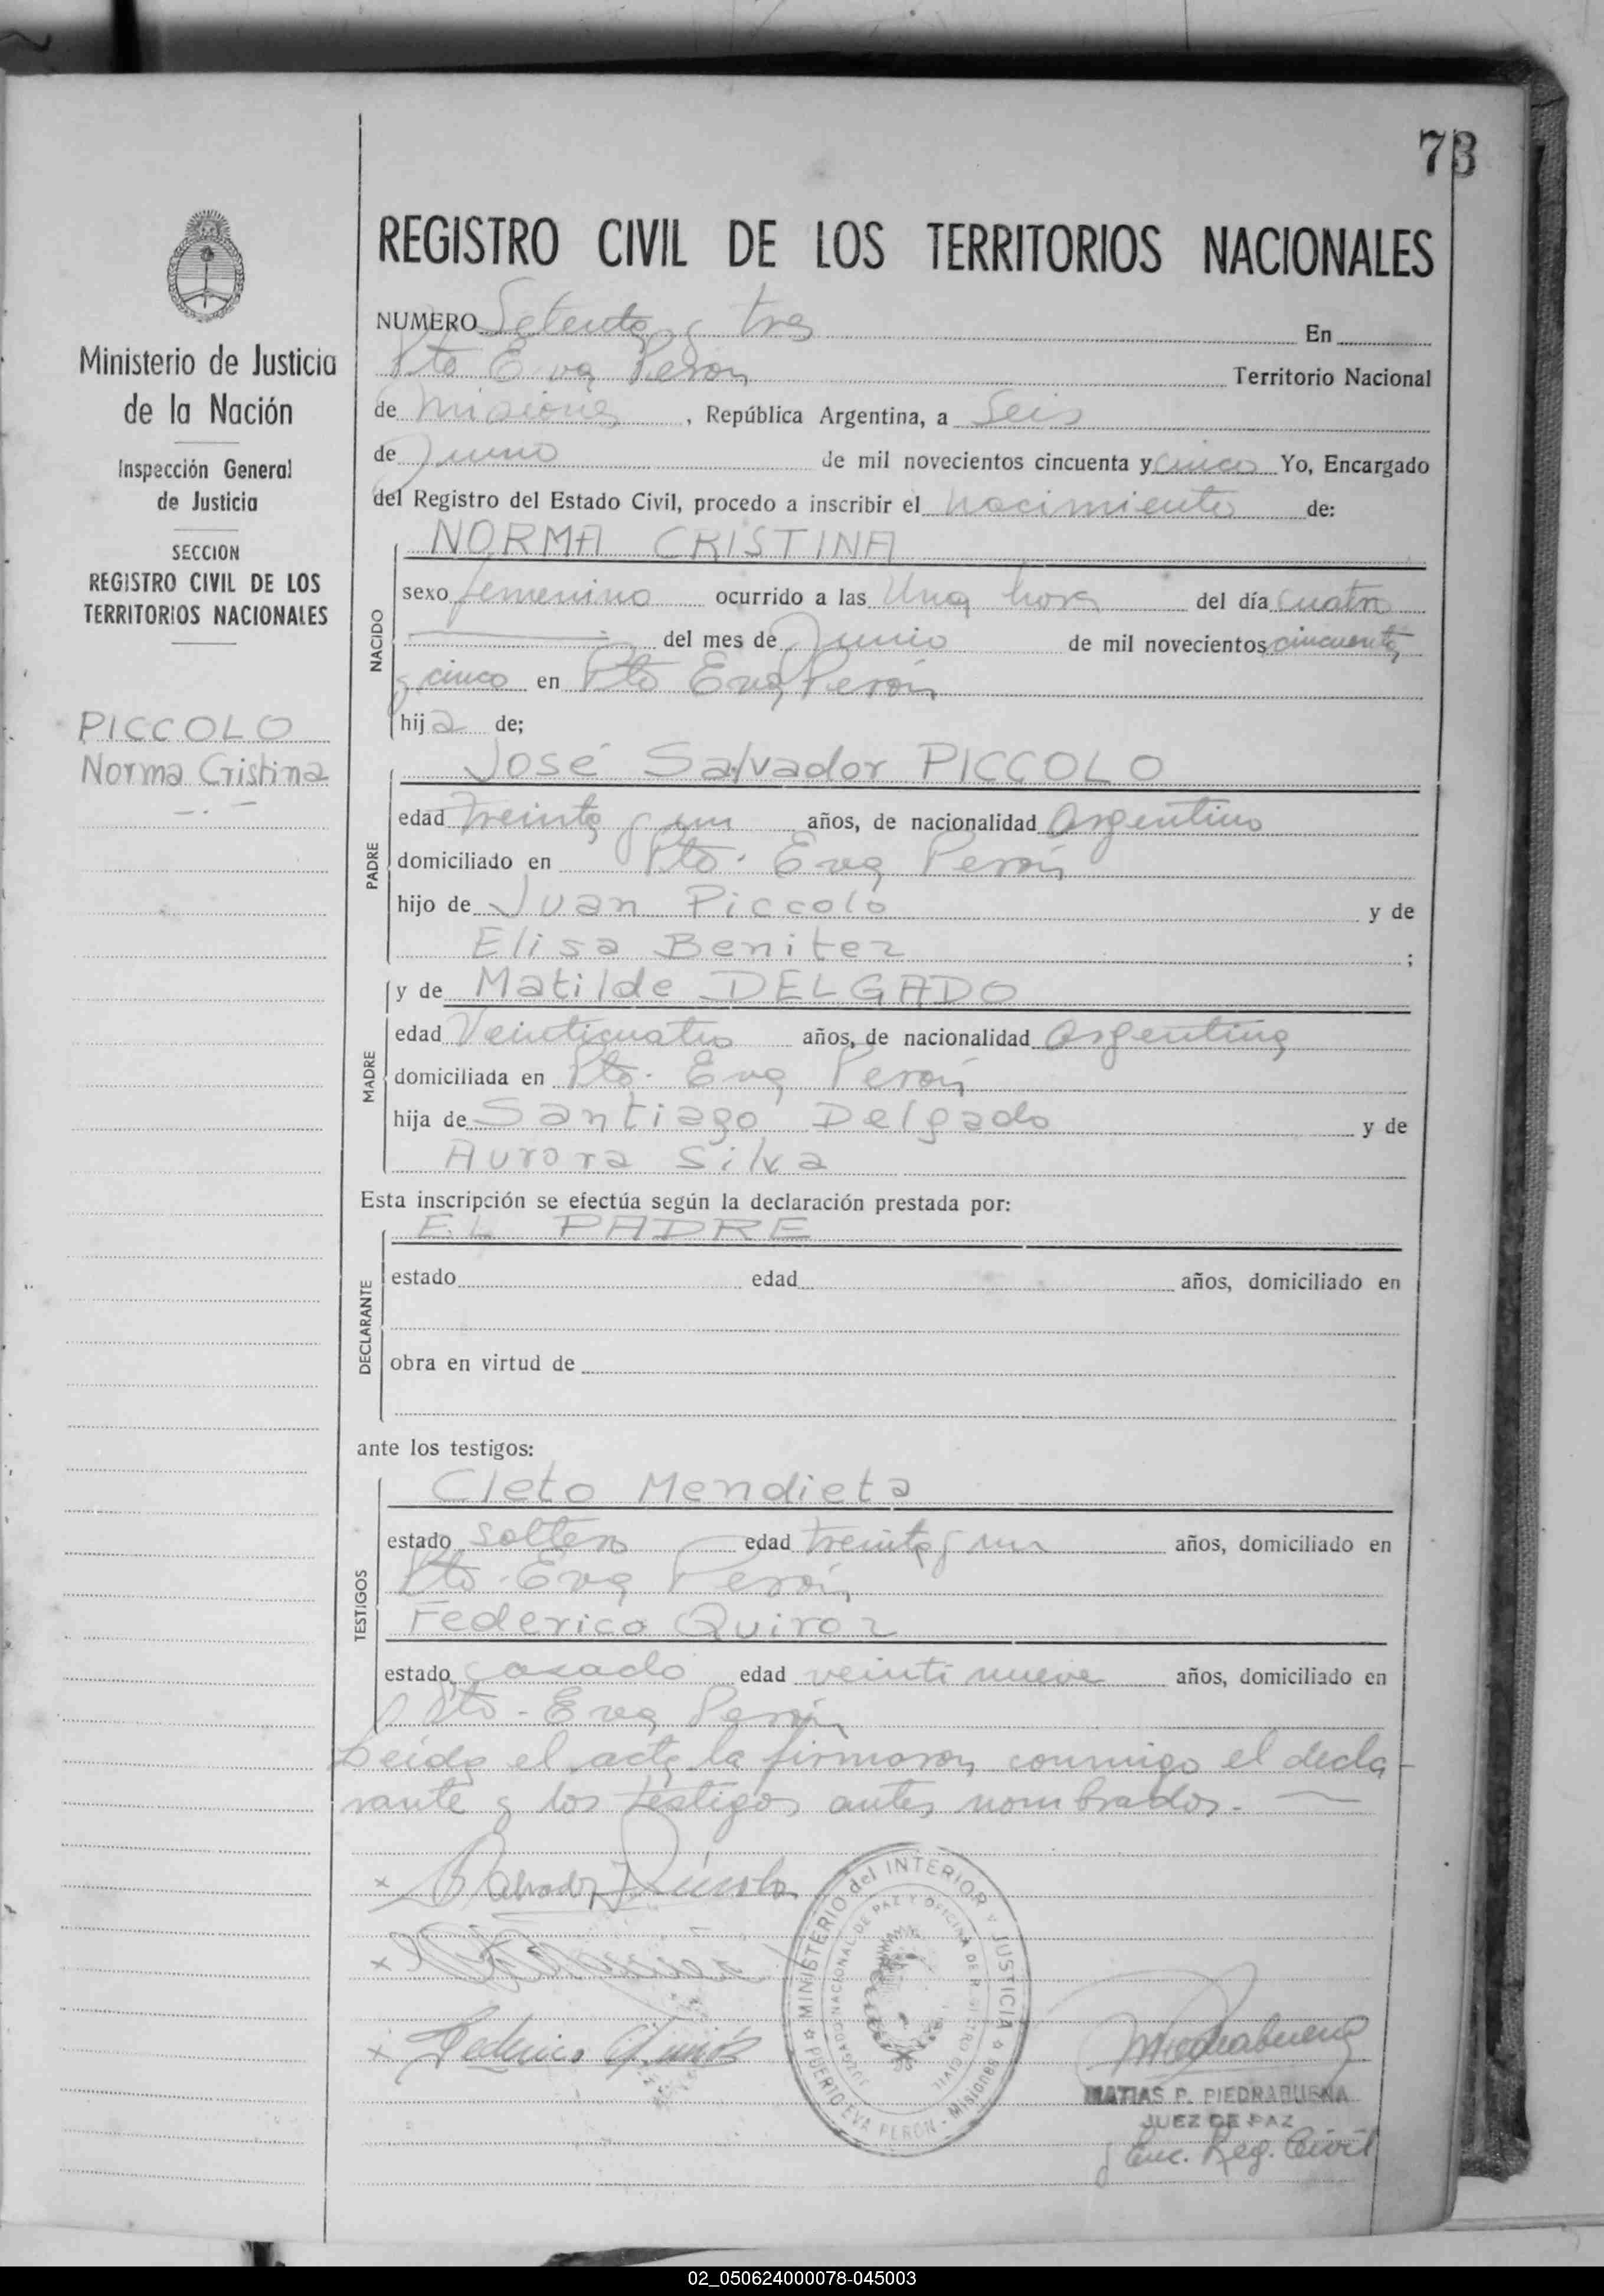 73
REGISTRO CIVIL DE LOS TERRITORIOS NACIONALES
Ministerio de Justicia
de la Nación
Inspección General
de Justicia
SECCION
REGISTRO CIVIL DE LOS
TERRITORIOS NACIONALES
PICCOLO
Norma Cristina
NUMERO Setenta y tres En
Pto Eva Perón Territorio Nacional
de Misiones, República Argentina, a Seis
de Junio de mil novecientos cincuenta y cinco Yo, Encargado
del Registro del Estado Civil, procedo a inscribir el nacimiento de:
NACIDO
NORMA CRISTINA
sexo femenino ocurrido a las Una hora del día cuatro
del mes de Junio de mil novecientos cincuenta
y cinco en Pto Eva Perón
hija de;
PADRE
José Salvador PICCOLO
edad treinta y un años, de nacionalidad Argentino
domiciliado en Pto. Eva Perón
hijo de Juan Piccolo y de
Elisa Benitez ;
MADRE
y de Matilde DELGADO
edad Veinticuatro años, de nacionalidad Argentina
domiciliada en Pto. Eva Perón
hija de Santiago Delgado y de
Aurora Silva
Esta inscripción se efectúa según la declaración prestada por:
DECLARANTE
EL PADRE
estado edad años, domiciliado en
obra en virtud de
ante los testigos:
TESTIGOS
Cleto Mendieta
estado soltero edad treinta y un años, domiciliado en
Pto. Eva Perón
Federico Quiroz
estado casado edad veinti nueve años, domiciliado en
Pto - Eva Perón
Leida el acta la firmaron conmigo el decla-
rante y los testigos antes nombrados.-
MINISTERIO del INTERIOR y JUSTICIA
JUZGADO NACIONAL DE PAZ Y OFICINA DE REGISTRO CIVIL
PUERTO EVA PERON - Misiones
MATIAS P. PIEDRABUENA
JUEZ DE PAZ
y Enc. Reg. Civil
02_050624000078-045003